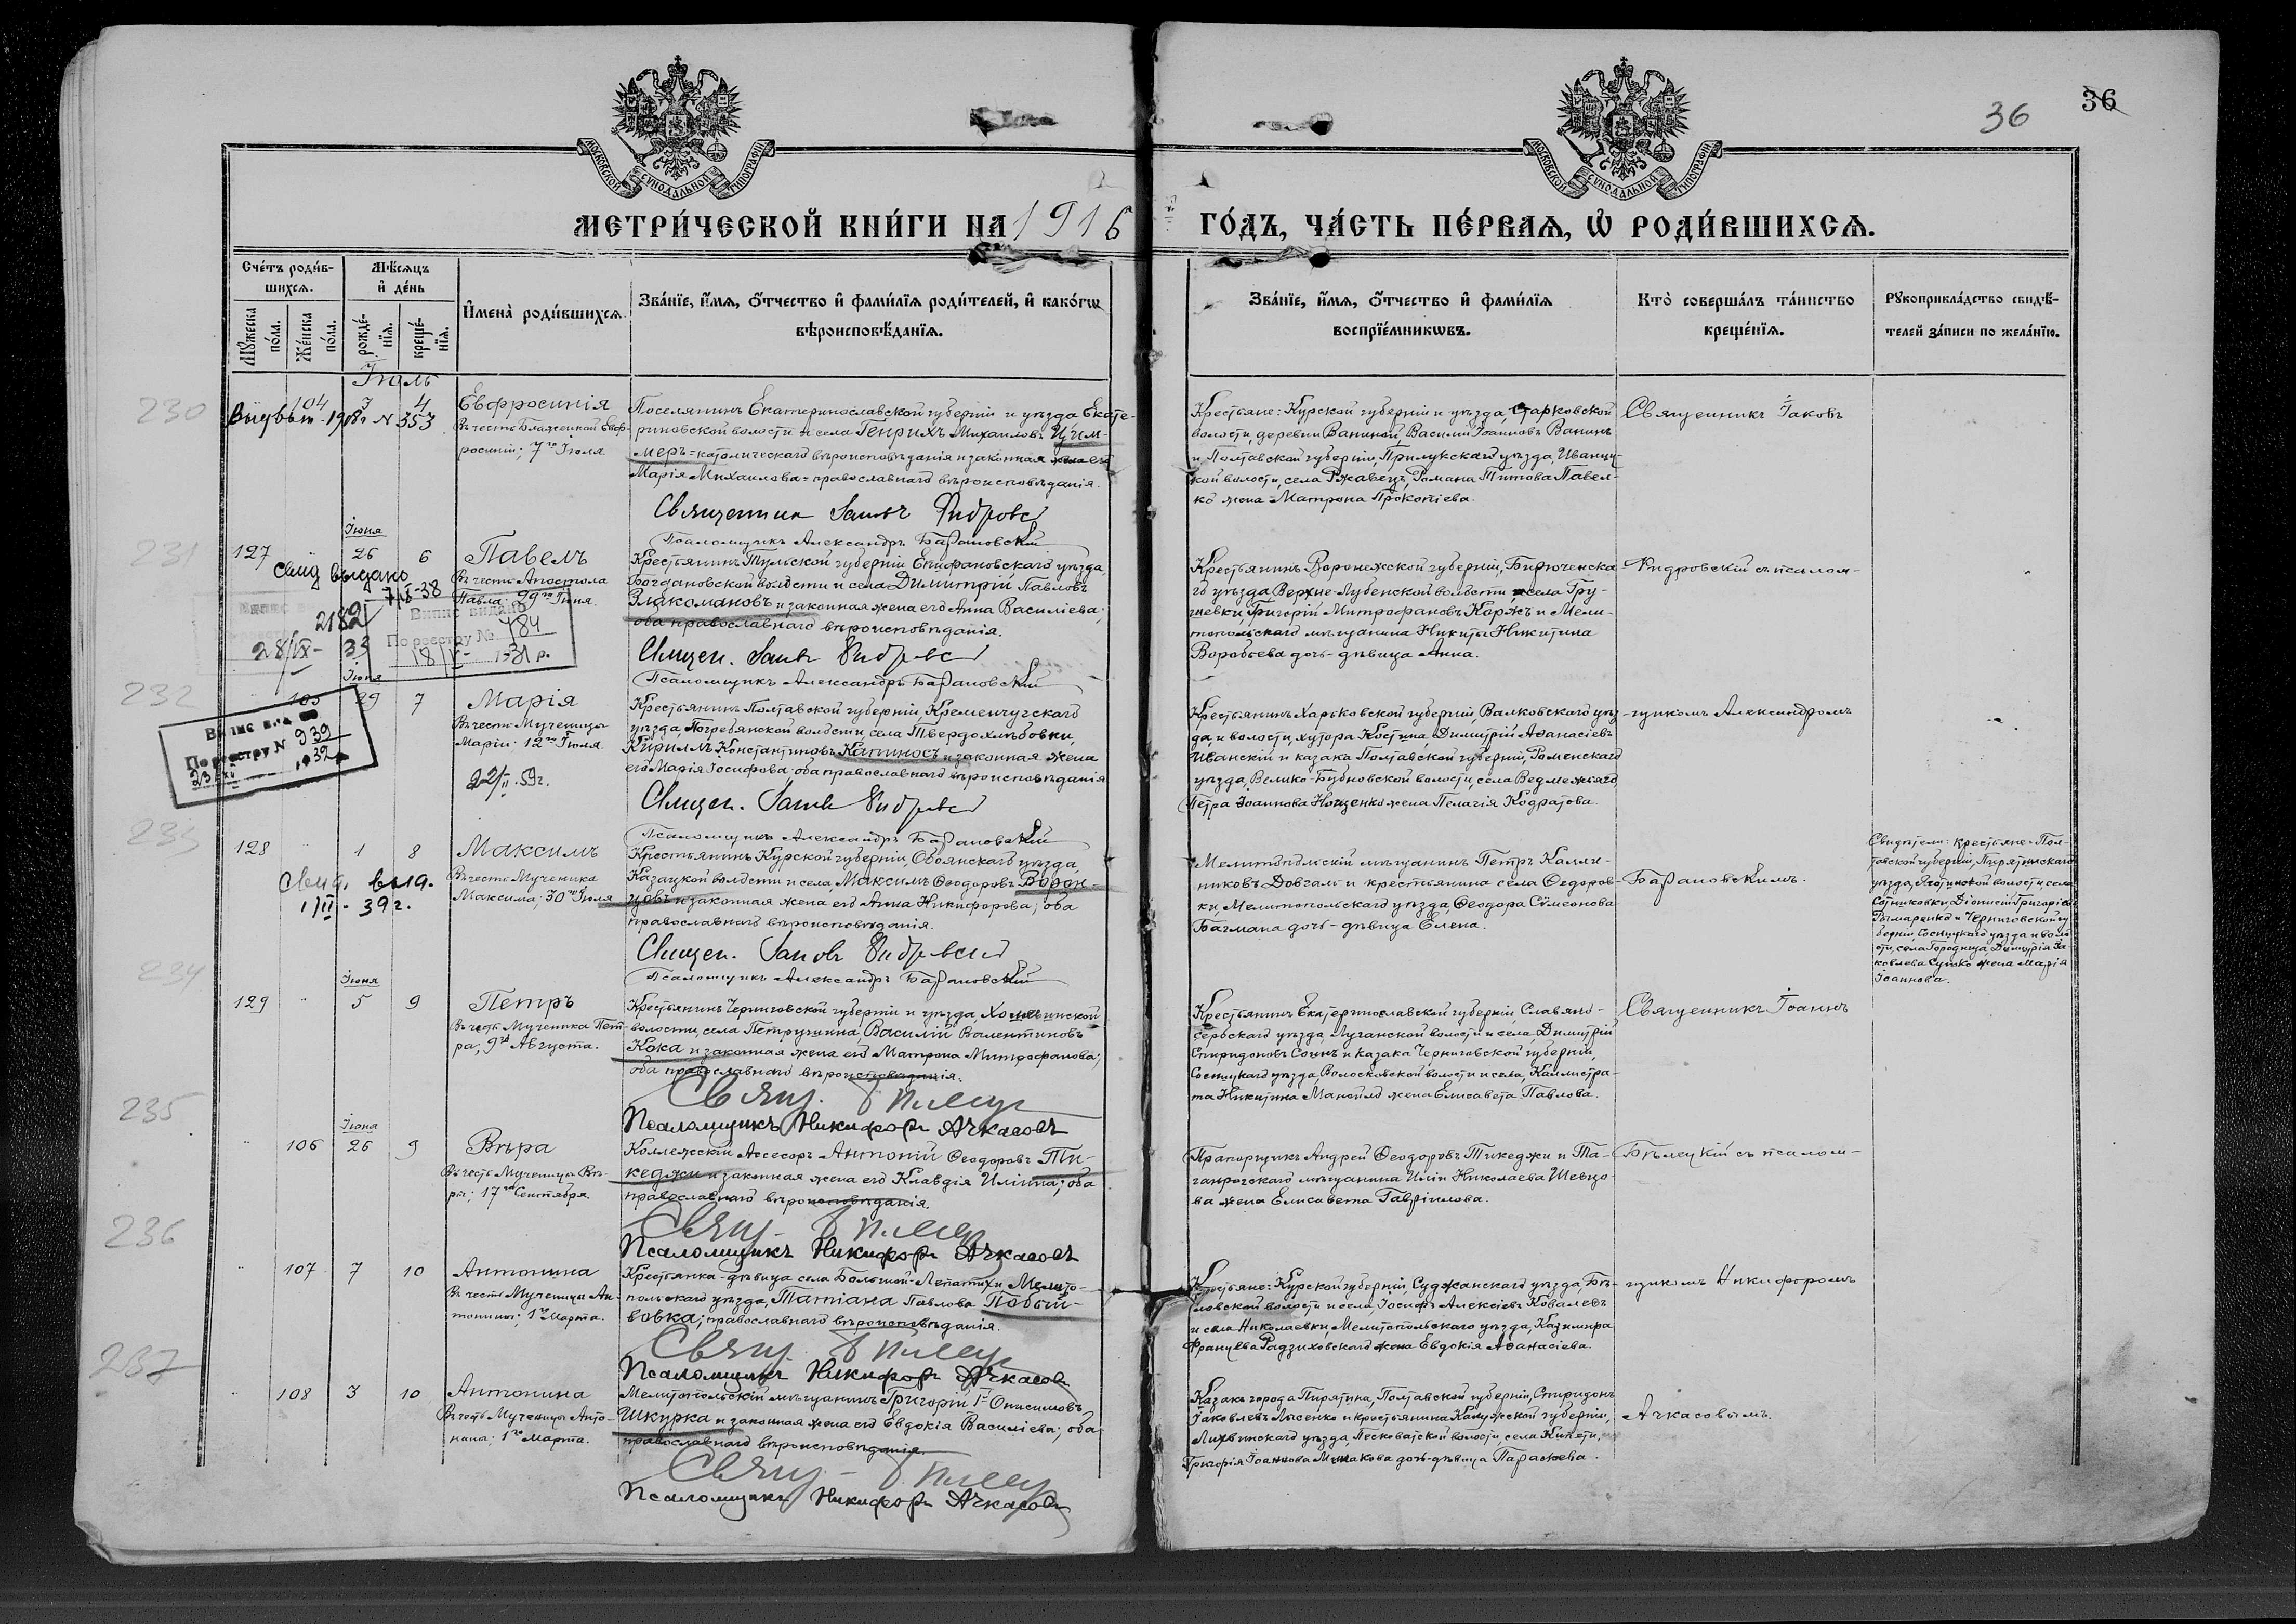 36
36
МОСКОВСКОЙ СѴНОДАЛЬНОЙ ТИПОГРАФІИ
МОСКОВСКОЙ СѴНОДАЛЬНОЙ ТИПОГРАФІИ
МЕТРИ́ЧЕСКОЙ КНИ́ГИ НА 1916
ГО́ДЪ, ЧА́СТЬ ПЕ́РВАЯ, Ѡ РОДИ́ВШИХСЯ.
Сче́тъ роди́в-
шихся.
Мѣ́сяцъ
и де́нь
Мꙋжеска по́ла.
Же́нска по́ла.
рожде́-
нїя.
креще́-
нїя.
Имена̀ роди́вшихся.
Зва́нїе, и́мя, о́тчество и фами́лїя роди́телей, и како́гѡ
вѣроисповѣ́данїя.
Зва́нїе, и́мя, о́тчество и фами́лїя
воспрїе́мникѡвъ.
Кто̀ соверша́лъ та́инство
креще́нїя.
Рꙋкоприкла́дство свидѣ́-
телей за́писи по жела́нїю.
Іюль
230
104 3 4
353
Евфросинія
Въ честь блаженной Евф-
росиніи; 7го Іюля
Поселянинъ Екатеринославской губерніи и уѣзда, Екате-
риновской волости и села Генрихъ Михаиловъ Цим-
меръ = католическаго вѣроисповѣданія и законная жена его
Марія Михаилова = православнаго вѣроисповѣданія.
Священник
Псаломщикъ Александръ Барановскій
Крестьяне: Курской губерніи и уѣзда, Старковской
волости, деревни Ваниной, Василій Іоанновъ Ванинъ
и Полтавской губерніи, Прилукскаго уѣзда, Иваниц-
кой волости, села Ржавецъ, Романа Титова Павел-
ко жена Матрона Прокопіева.
Священникъ Іаковъ
231
127
Іюня
26 6
Свид выдано
7/II-38
2182
28/IX- 33
Випис видано
По реестру № 784
18/V- 1931 р.
Павелъ
Въ честь Апостола
Павла: 29го Іюня.
Крестьянинъ Тульской губерніи Епифановскаго уѣзда,
Богдановской волости и села Димитрій Павловъ
Злакомановъ и законная жена его Анна Василіева;
оба православнаго вѣроисповѣданія.
Священ.
Псаломщикъ Александръ Барановскій
Крестьянинъ Воронежской губерніи, Бирюченска-
го уѣзда, Верхне-Лубенской волости, села Гру-
шевки, Григорій Митрофановъ Коржъ и Мели-
топольскаго мѣщанина Никиты Никитина
Воробьева дочь - дѣвица Анна.
Кидровскій съ псалом-
232
103
Іюня
29 7
По реестру N 939
1932
Марія
Въ честь Мученицы
Маріи: 12го Іюля.
22/II.59г.
Крестьянинъ Полтавской губерніи, Кременчугскаго
уѣзда, Погребянской волости, села Твердохлѣбовки,
Кириллъ Константиновъ Капиносъ и законная жена
его Марія Іосифова; оба православнаго вѣроисповѣданія
Священ.
Псаломщикъ Александръ Барановскій
Крестьянинъ Харьковской губерніи, Валковскаго уѣз-
да, и волости, хутора Костина, Димитрій Аѳанасіевъ
Иванскій и казака Полтавской губерніи, Роменскаго
уѣзда, Велико-Бубновской волости, села Ведмежаго
Петра Іоаннова Нощенко жена Пелагія Кодратова.
щикомъ Александромъ
233
128 1 8
Свид. выд.
1/II - 39 г.
Максимъ
Въ честь Мученика
Максима; 30го Іюля
Крестьянинъ Курской губерніи, Обоянскаго уѣзда,
Казацкой волости и села, Максимъ Ѳеодоровъ Ворон-
цовъ и законная жена его Анна Никифорова; оба
православнаго вѣроисповѣданія.
Священ.
Псаломщикъ Александръ Барановскій
Мелитопольскій мѣщанинъ Петръ Калли-
никовъ Довгаль и крестьянина села Ѳедоров-
ки, Мелитопольскаго уѣзда, Ѳеодора Сѵмеонова
Багмана дочь - дѣвица Елена.
Барановскимъ.
Свидѣтели: крестьяне Пол-
тавской губерніи, Пирятинскаго
уѣзда, Яготинской волости, села
Сотниковки, Діонисій Григоріевъ
Рымаренко и Черниговской гу-
берніи, Сосницкаго уѣзда и воло-
сти, села Городища, Димитрія Іа-
ковлева Сушко жена Марія
Іоаннова.
234
129
Іюня
5 9
Петръ
Въ честь Мученика Пет-
ра; 9го Августа.
Крестьянинъ Черниговской губерніи и уѣзда,
волости, села Петрушина, Василій Валентиновъ
Кока и законная жена его Матрона Митрофанова;
оба православнаго вѣроисповѣданія.
Свящ.
Псаломщикъ Никифоръ Ачкасовъ
Крестьянинъ Екатеринославской губерніи Славяно-
сербскаго уѣзда, Луганской волости и села, Димитрій
Спиридоновъ Сошъ и казака Черниговской губерніи,
Сосницкаго уѣзда, Волосковской волости и села, Каллистра-
та Никитина Манойло жена Елисавета Павлова.
Священникъ Іоаннъ
235
106
Іюня
26 9
Вѣра
Въ честь Мученицы Вѣ-
ры; 17го Сентября
Коллежскій Ассесоръ Антоній Ѳеодоровъ Ти-
кеджи и законная жена его Клавдія Иліина; оба
православнаго вѣроисповѣданія.
Свящ.
Псаломщикъ Никифоръ Ачкасовъ
Прапорщикъ Андрей Ѳеодоровъ Тикеджи и Та-
ганрогскаго мѣщанина Иліи Николаева Шевцо-
ва жена Елисавета Гавріилова.
Бѣлецкій съ псалом-
236
107 7 10
Антонина
Въ честь Мученицы Ан-
тонины; 1го Марта.
Крестьянка - дѣвица села Большой-Лепатихи, Мелито-
польскаго уѣзда, Татіана Павлова Побый-
вовка; православнаго вѣроисповѣданія.
Свящ.
Псаломщикъ Никифоръ Ачкасовъ
Крестьяне: Курской губерніи, Суджанскаго уѣзда, Бѣ-
ловской волости и села, Іосифъ Алексіевъ Ковалевъ
и села Николаевки, Мелитопольскаго уѣзда, Казимира
Францева Радзиховскаго жена Евдокія Аѳанасіева.
щикомъ Никифоромъ
237
108 3 10
Антонина
Въ честь Мученицы Анто-
нина; 1го Марта.
Мелитопольскій мѣщанинъ Григорій Онисимовъ
Шкурка и законная жена его Евдокія Василіева; оба
православнаго вѣроисповѣданія.
Свящ.
Псаломщикъ Никифоръ Ачкасовъ
Казакъ города Пирятина, Полтавской губерніи, Спиридонъ
Іаковлевъ Лысенко и крестьянина Калужской губерніи,
Лихвинскаго уѣзда, Песковатской волости, села Кипети,
Григорія Іоаннова Минакова дочь-дѣвица Параскева.
Ачкасовымъ.